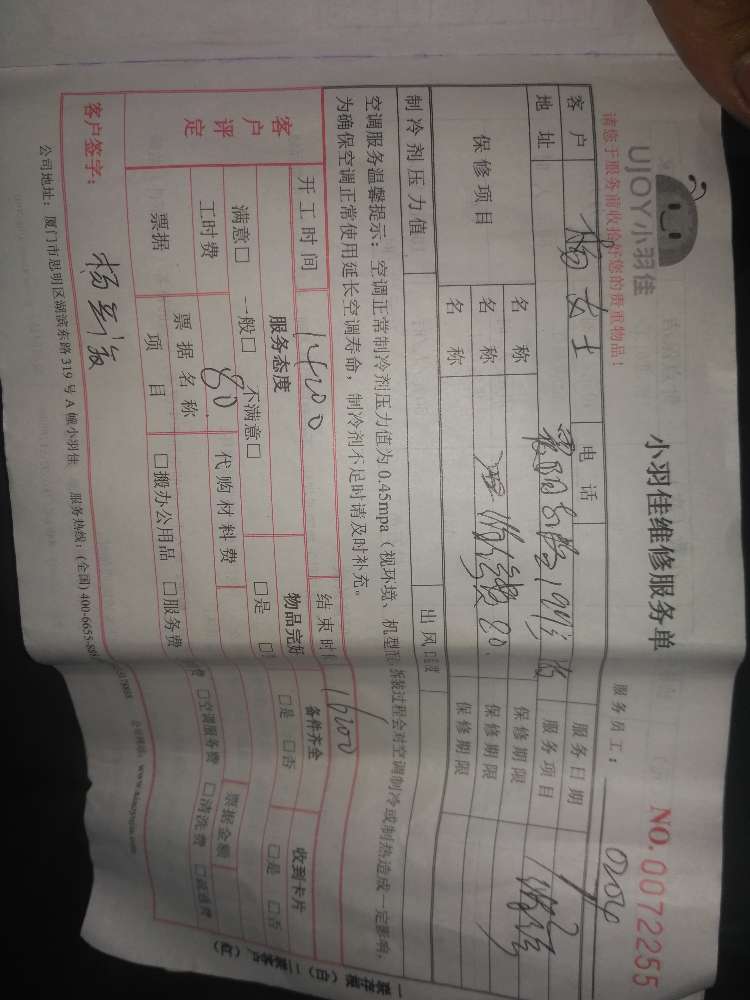 UJOY小羽佳
小羽佳维修服务单
NO.0072255
请您于服务前收拾好您的贵重物品！
服务员工： 0204
客户 杨女士 电话 服务日期
地址 服务项目
保修项目 名称 保修期限
名称 80. 保修期限
名称 保修期限
制冷剂压力值 出风
空调服务温馨提示：空调正常制冷剂压力值为0.45mpa（视环境、机型 拆装过程会对空调制冷或制热造成一定影响，
为确保空调正常使用延长空调寿命，制冷剂不足时请及时补充。
开工时间 14:00 结束时 16:00
客户评定 服务态度 物品完好 备件齐全 收到卡片
满意□ 一般□ 不满意□ □是 □ □是 □否 □是 □否
工时费 80. 代购材料费
票据 票据名称 票据金额
项目 □搬办公用品 □服务费 □空调服务费 □清洗费 □疏通费
客户签字： 杨
公司地址：厦门市思明区湖滨东路319号A幢小羽佳 服务热线：(全国)400-6655-88
一联存根（白）二联客户（红）